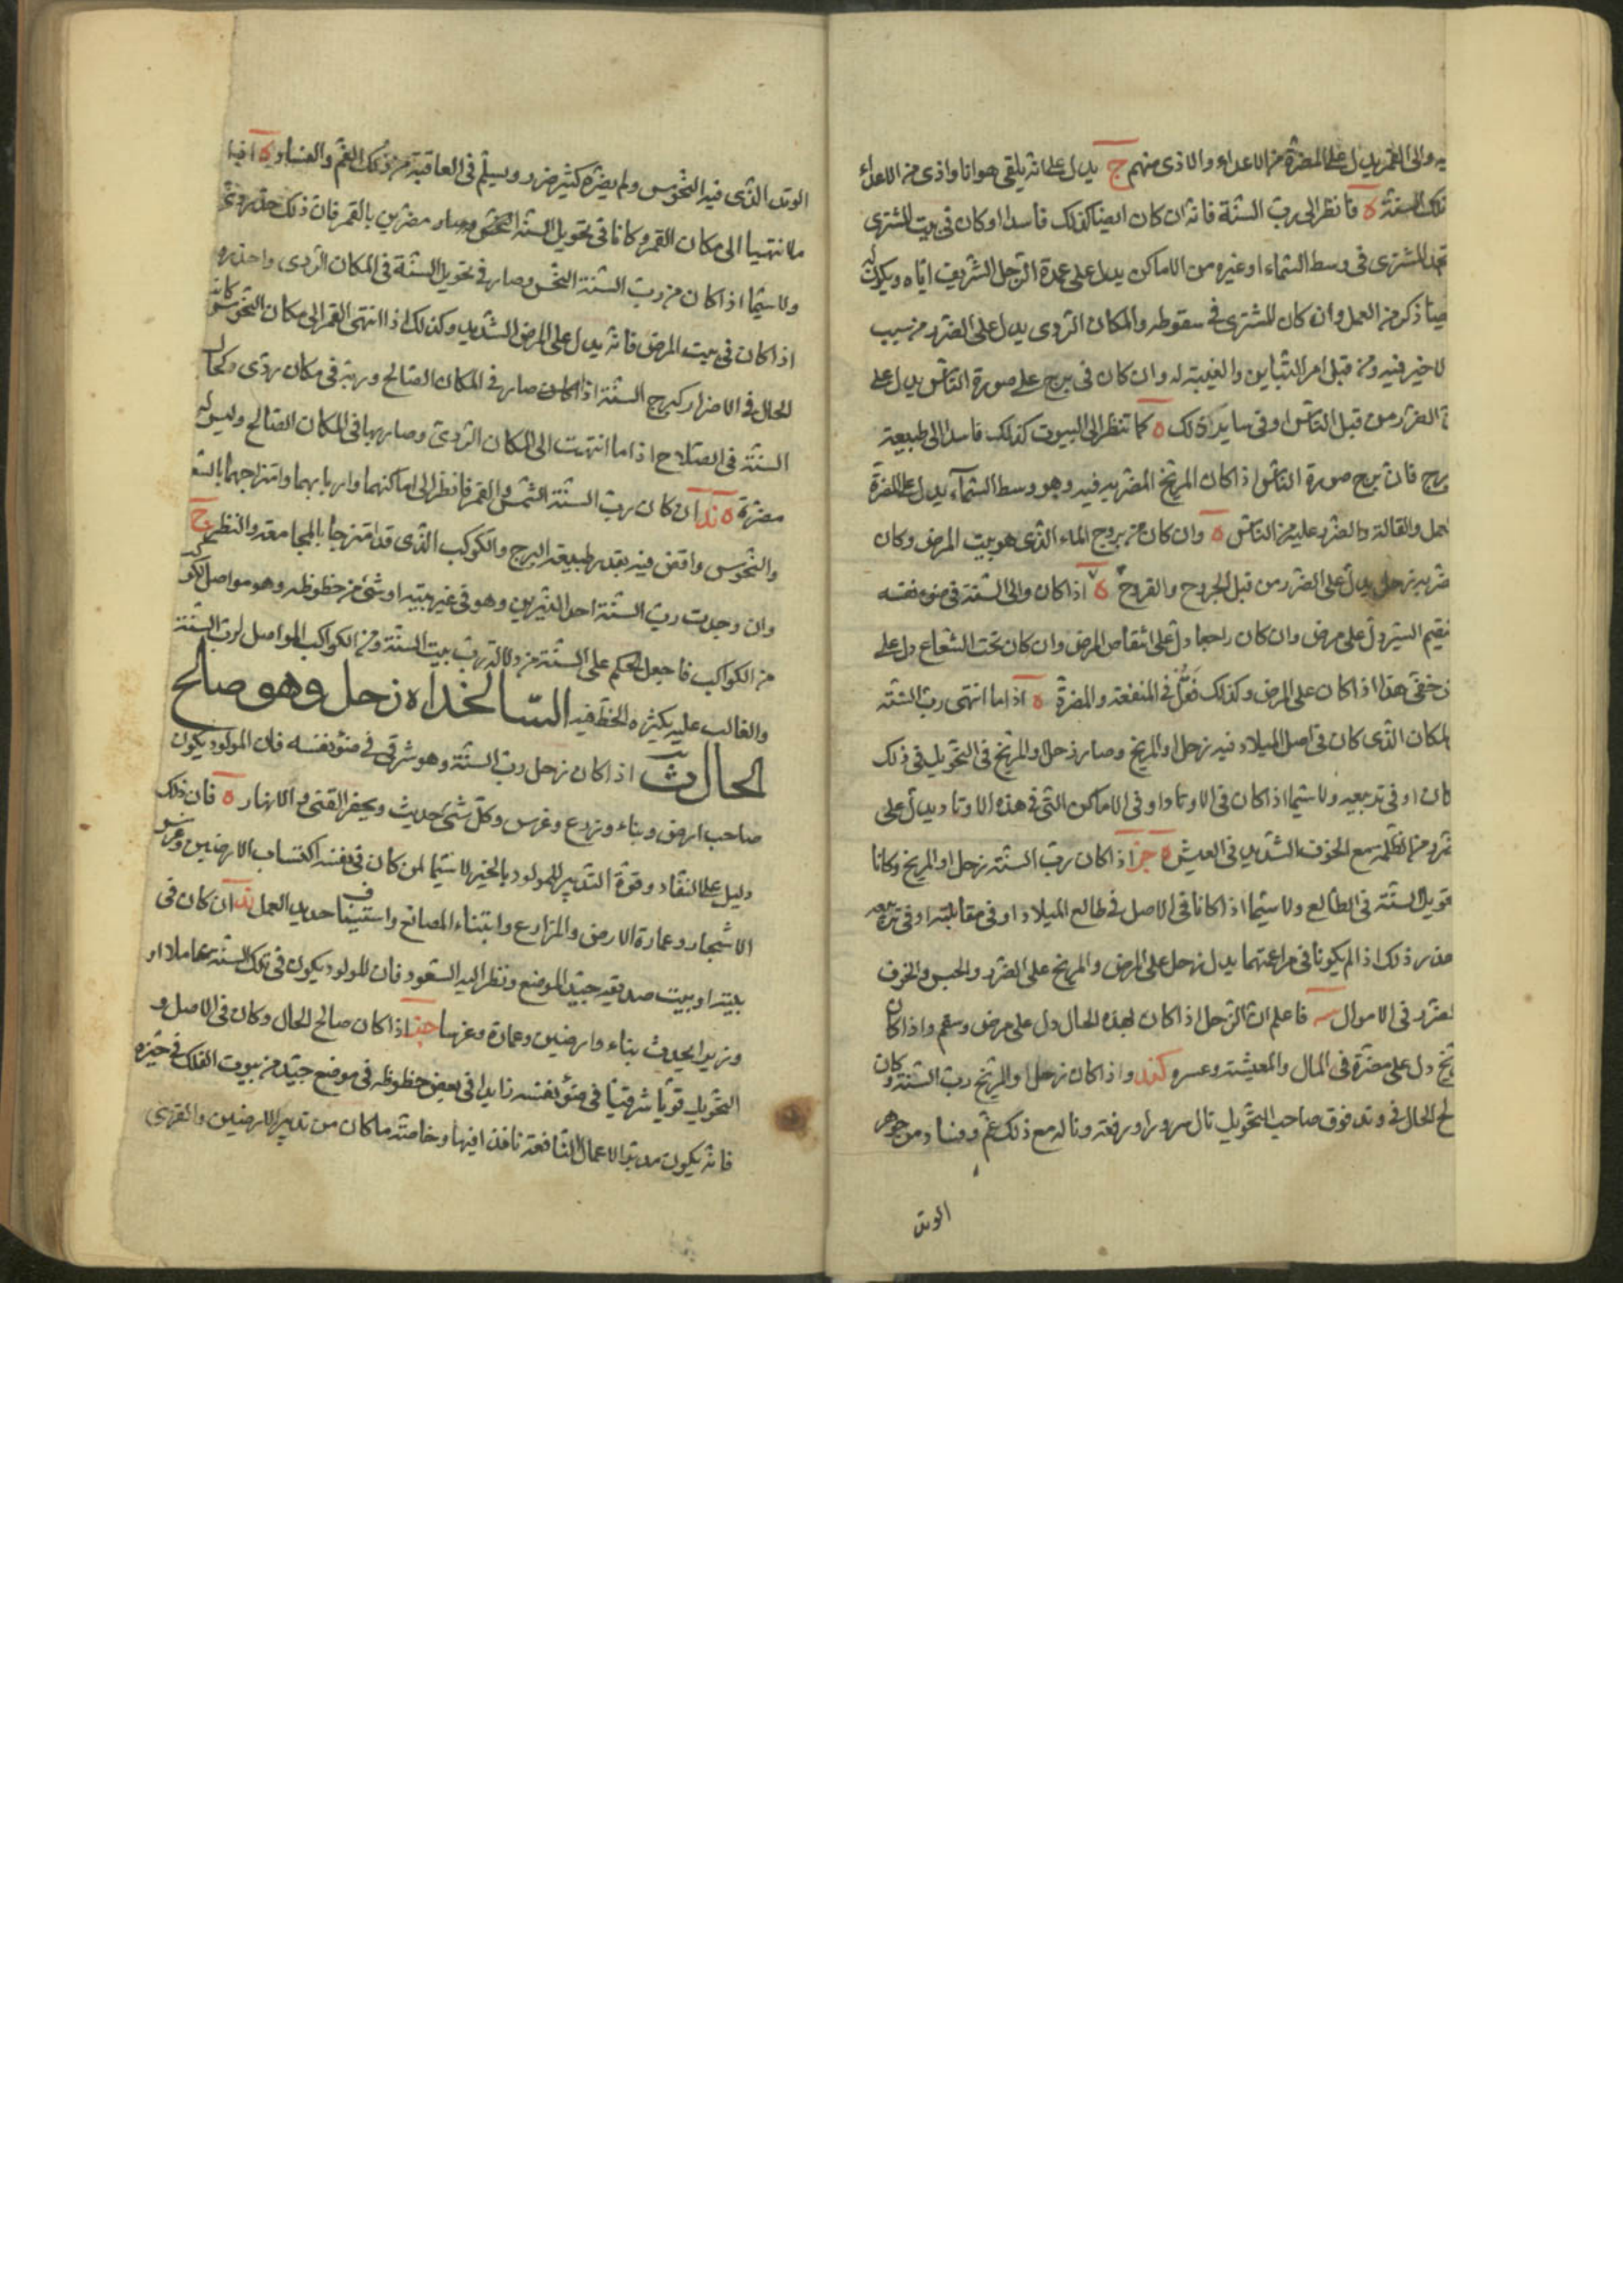 يه والى القمر يدل على المضرة من الاعداء والاذى منهم ج يدل على انه يلقى هوانا واذى من الاعداء
تلك السنة ه فانظر الى رب السنة فانه ان كان ايضا كذلك فاسدا وكان فى بيت المشترى
المشترى فى وسط السماء او غيره من الاماكن يدل على عمدة الرجل الشريف اياه ويكون له
ذكر من العمل وان كان المشترى فى سقوطه والمكان الردى يدل على الضرر من سبب
لا خير فيه ومن قبل امر والغيبة له وان كان فى برج على صورة الناس يدل على
الضرر من قبل الناس او فى ساير ذلك ه كما تنظر الى البيوت كذلك فاسدا الى طبيعة
برج فان برج صورة الناس اذا كان المريخ المضر به فيه وهو وسط السماء يدل على المضرة
والقالة والضرر عليه من الناس ه وان كان من بروج الماء الذى هو بيت المرض وكان
زحل يدل على الضرر من قبل الجروح والقروح ه اذا كان والى السنة فى ضوء نفسه
السير دل على مرض وان كان راجعا دل على انتقاص المرض وان كان تحت الشعاع دل على
هذا اذا كان على المرض وكذلك فقل فى المنفعة والمضرة ه اذا ما انتهى رب السنة
المكان الذى كان فى اصل الميلاد فيه زحل او المريخ وصار زحل والمريخ فى التحويل فى ذلك
او فى تربيعه ولا سيما اذا كان فى الاوتاد او فى الاماكن التى فى هذه الاوتاد يدل على
مع الخوف الشديد فى العيش ه اذا كان رب السنة زحل او المريخ وكانا
تحويل السنة فى الطالع ولا سيما اذا كانا فى الاصل فى طالع الميلاد او فى مقابلته او فى تربيعه
ذلك اذا لم يكونا فى مراعتهما يدل زحل على المرض والمريخ على الضرر والحبس والخوف
الضرر فى الاموال فاعلم ان الزحل اذا كان بهذه الحال دل على مرض وسقم واذا كان
دل على مضرة فى المال والمعيشة وعسره واذا كان زحل او المريخ رب السنة وكان
الحال فى وتد فوق صاحب التحويل نال سرورا ورفعة وناله مع ذلك غم وفساد من جوهر
الوتد
الوتد الذى فيه النحوس ولم يضره كثير ضرر ويسلم فى العاقبة من ذلك الغم والفساد ه اذا
ما انتهيا الى مكان القمر وكانا فى تحويل السنة وصار مضرين بالقمر فان ذلك
ولا سيما اذا كان من رب السنة النحس وصار فى تحويل السنة فى المكان الردى واحذره
اذا كان فى بيت المرض فانه يدل على المرض الشديد وكذلك اذا انتهى القمر الى مكان النحوس كانت
الحال فى الاضرار كبرج السنة اذا كان صار فى المكان الصالح وربه فى مكان ردى وكحال
السنة فى الصلاح اذا ما انتهت الى المكان الردى وصار ربها فى المكان الصالح وليس له
مضرة ه ان كان رب السنة الشمس والقمر فانظر الى اماكنهما واربابهما وامتزاجهما بالسعود
والنحوس واقض فيه بقدر طبيعة البرج والكوكب الذى قد امتزجا بالمجامعة والنظر ج
وان وجدت رب السنة احد النيرين وهو فى غير بيته او شئ من حظوظه وهو مواصل لكوكب
من الكواكب فاجعل الحكم على السنة من دلالة رب بيت السنة ومن الكواكب المواصل لرب السنة
والغالب عليه بكثره الحظ فيه السالخداه زحل وهو صالح
الحال ث اذا كان زحل رب السنة وهو شرقى فى ضوء نفسه فان المولود يكون
صاحب ارض وبناء وزرع وغرس وكل شئ حديث ويحفر القنى والانهار ه فان ذلك
دليل على النفاد وقوة التدبير للمولود بالخير لا سيما لمن كان فى نفسه اكتساب الارضين وغرس
الاشجار وعمارة الارض والمزارع وابتناء المصانع واستيناف حديد العمل ند ان كان فى
بيته او بيت صديقه جيد الموضع ونظر اليه السعود فان المولود يكون فى تلك السنة عاملا او
وزيرا يحدث بناء وارضين وعمارة وغرسا اذا كان صالح الحال وكان فى الاصل و
التحويل قويا شرقيا فى ضوء نفسه زايدا فى بعض حظوظه فى موضع جيد من بيوت الفلك فى حيزه
فانه يكون مدبرا الاعمال النافعة نافذا فيها وخاصة ما كان من تدبير الارضين والقرى